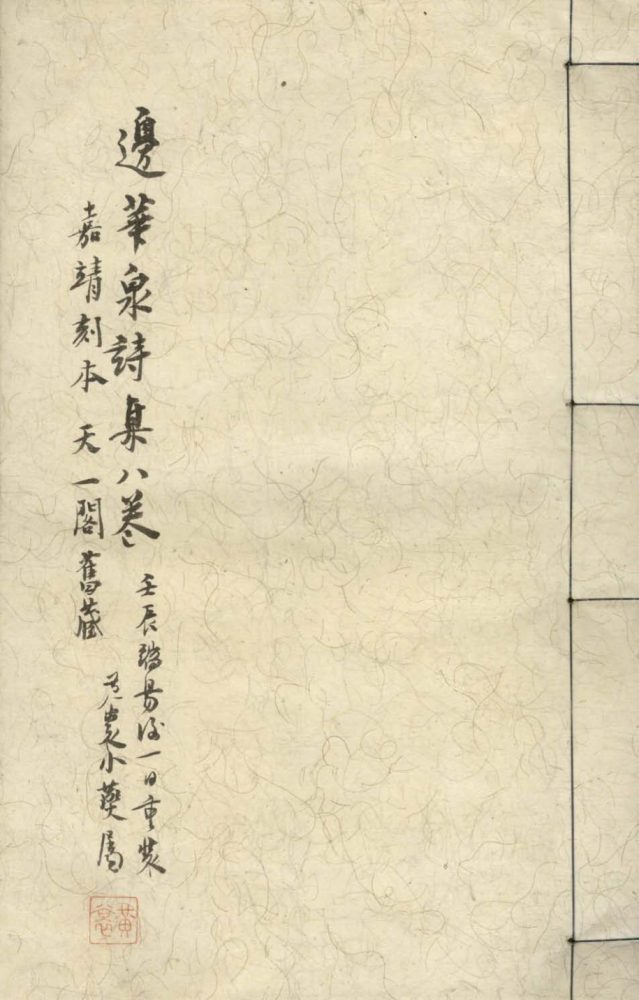 邊華泉詩集八卷
嘉靖刻本 天一閣舊藏
壬辰端昜後一日重裝
小 屬
黃裳